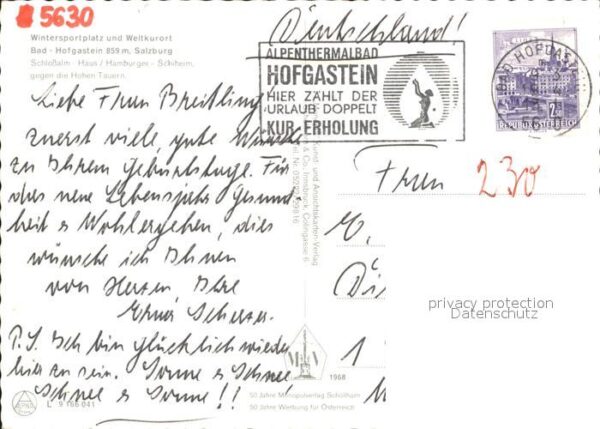 5630
Deutschland!
Wintersportplatz und Weltkurort
Bad - Hofgastein 859 m, Salzburg
Schloßalm - Haus / Hamburger - Schiheim,
gegen die Hohen Tauern.
ALPENTHERMALBAD
HOFGASTEIN
HIER ZÄHLT DER
URLAUB DOPPELT
KUR-ERHOLUNG
BAD HOFGASTEIN
REPUBLIK ÖSTERREICH
Liebe Frau Breitling
zuerst viele, gute Wünsche
zu Ihrem Geburtstage. Für
das neue Lebensjahr Gesund-
heit & Wohlergehen, dies
wünsche ich Ihnen
von Herzen Ihre
Scherer.
P.S. Ich bin glücklich wieder
hier zu sein. Sonne & Schnee
Schnee & Sonne!!
Kunst- und Ansichtskarten-Verlag
& Co., Innsbruck, Colingasse 6
Frau
230
1
privacy protection
Datenschutz
1968
L 9 166 041
50 Jahre Monopolverlag Schöllhorn
50 Jahre Werbung für Österreich